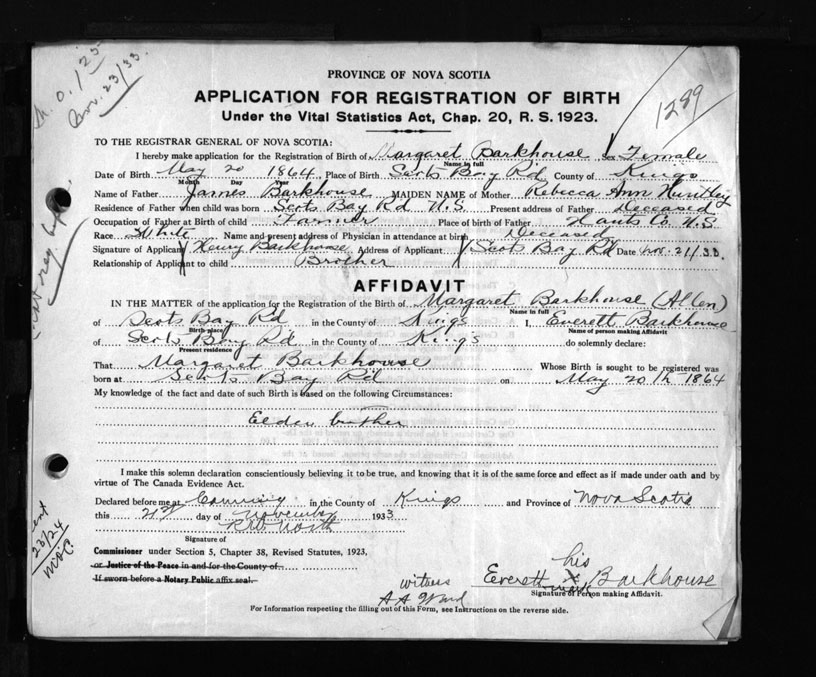 PROVINCE OF NOVA SCOTIA
APPLICATION FOR REGISTRATION OF BIRTH
Under the Vital Statistics Act, Chap. 20, R. S. 1923.
1289
Nov. 23/33.
TO THE REGISTRAR GENERAL OF NOVA SCOTIA:
I hereby make application for the Registration of Birth of Margaret Barkhouse Sex Female
Name in full
Date of Birth May 20 1864 Place of Birth Scots Bay Rd County of Kings
Month Day Year
Name of Father James Barkhouse MAIDEN NAME of Mother Rebecca Ann Huntley
Residence of Father when child was born Scots Bay Rd N.S. Present address of Father Deceased
Occupation of Father at Birth of child Farmer Place of birth of Father Hants Co N.S.
Race White Name and present address of Physician in attendance at birth Deceased
Signature of Applicant Henry Barkhouse Address of Applicant Scots Bay Rd Date Nov. 21/33.
Relationship of Applicant to child Brother
AFFIDAVIT
IN THE MATTER of the application for the Registration of the Birth of Margaret Barkhouse (Allen)
Name in full
of Scots Bay Rd in the County of Kings I, Everett Barkhouse
Birth-place Name of person making Affidavit
of Scots Bay Rd in the County of Kings do solemnly declare:
Present residence
That Margaret Barkhouse Whose Birth is sought to be registered was
born at Scots Bay Rd on May 20th 1864
My knowledge of the fact and date of such Birth is based on the following Circumstances:
Elder brother
I make this solemn declaration conscientiously believing it to be true, and knowing that it is of the same force and effect as if made under oath and by
virtue of The Canada Evidence Act.
Declared before me at Canning in the County of Kings and Province of Nova Scotia
this 21st day of November 1933
Signature of
Commissioner under Section 5, Chapter 38, Revised Statutes, 1923,
or Justice of the Peace in and for the County of
If sworn before a Notary Public affix seal.
his
Everett X Barkhouse
mark
Signature of Person making Affidavit.
witness
A A Ward
For Information respecting the filling out of this Form, see Instructions on the reverse side.